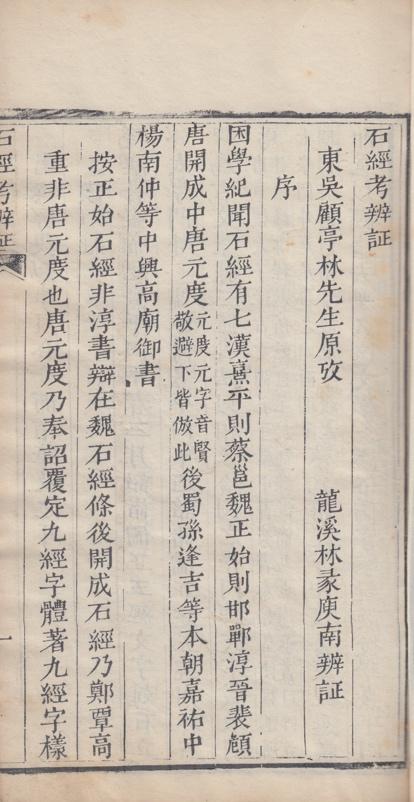 石經考辨証
東吳顧亭林先生原攷　龍溪林彖庚南辨証
序
困學紀聞石經有七漢熹平則蔡邕魏正始則邯鄲淳晉裴頠
唐開成中唐元度元度元字音賢敬避下皆倣此後蜀孫逢吉等本朝嘉祐中
楊南仲等中興高廟御書
按正始石經非淳書辯在魏石經條後開成石經乃鄭覃高
重非唐元度也唐元度乃奉詔覆定九經字體著九經字樣
石經考辨証
一